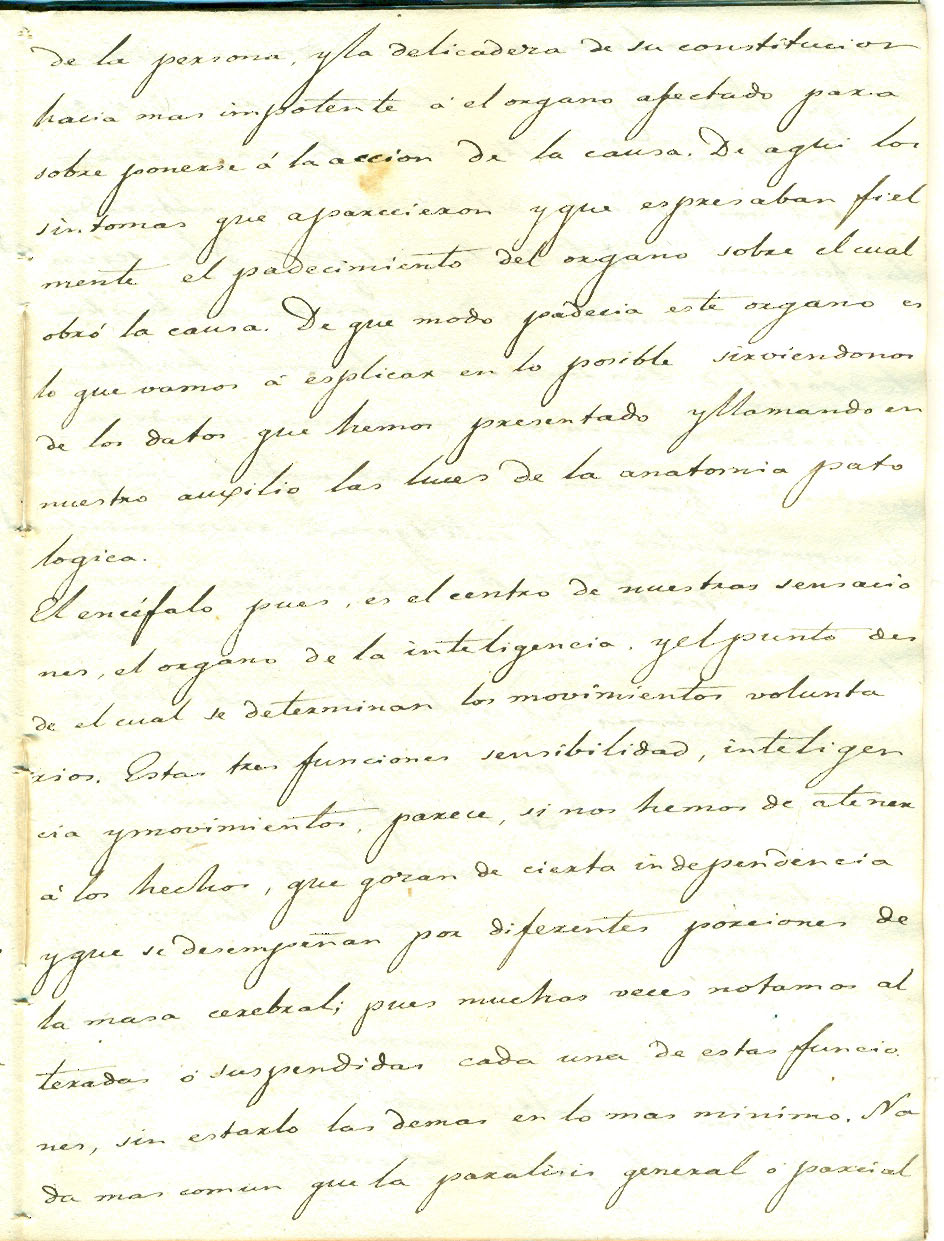 de la persona, y la delicadeza de su constitucion
hacia mas impotente á el organo afectado para
sobre ponerse á la accion de la causa. De aqui los
sintomas que aparecieron y que espresaban fiel
mente el padecimiento del organo sobre el cual
obró la causa. De que modo padecia este organo es
lo que vamos á esplicar en lo posible sirviendonos
de los datos que hemos presentado y llamando en
nuestro auxilio las luces de la anatomia pato
logica.
El encéfalo pues, es el centro de nuestras sensacio
nes, el organo de la inteligencia, y el punto des
de el cual se determinan los movimientos volunta
rios. Estas tres funciones sensibilidad, inteligen
cia y movimientos, parece, si nos hemos de atener
á los hechos, que gozan de cierta independencia
y que se desempeñan por diferentes porciones de
la masa cerebral; pues muchas veces notamos al
teradas ó suspendidas cada una de estas funcio
nes, sin estarlo las demas en lo mas minimo. Na
da mas comun que la paralisis general o parcial